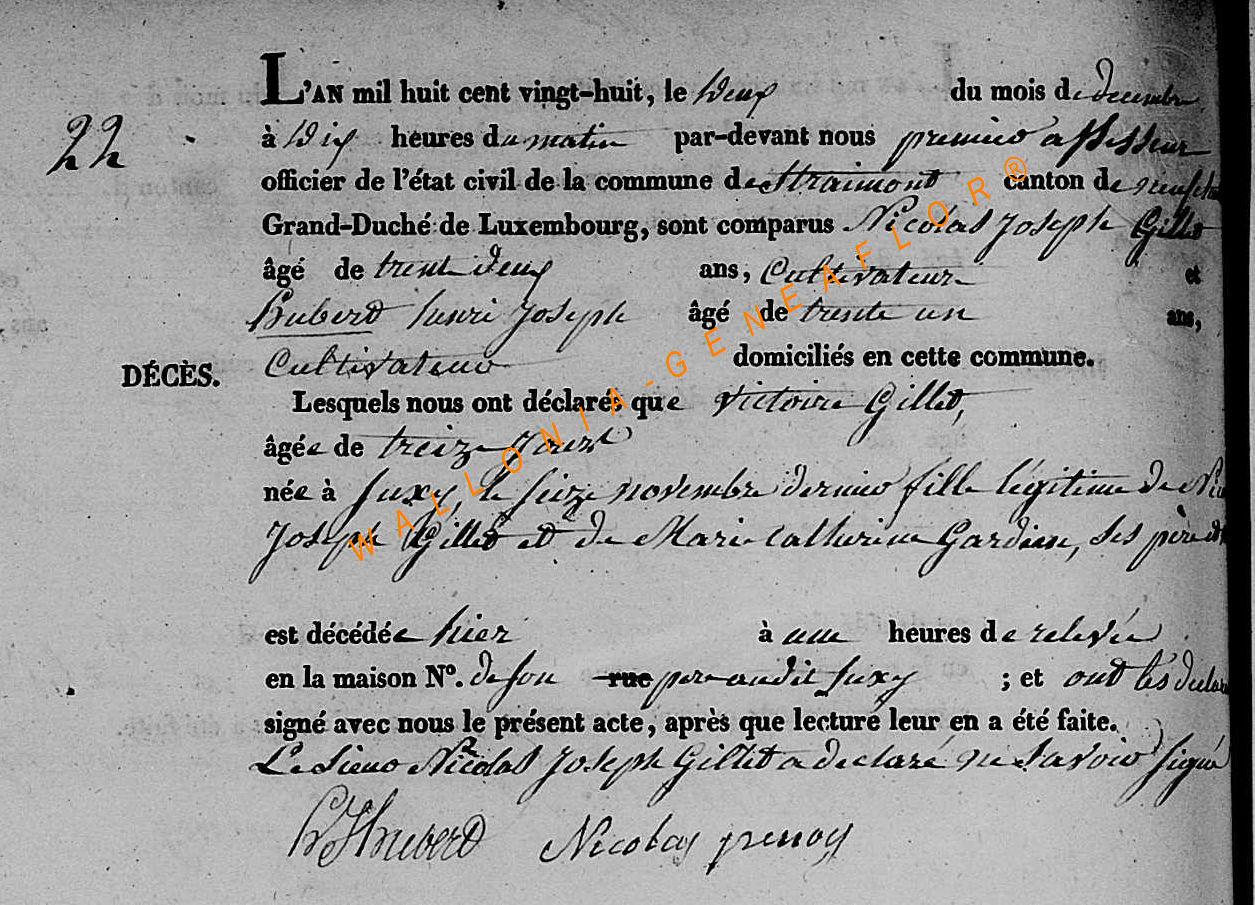 L'AN mil huit cent vingt-huit, le deux du mois de decembre
22
à dix heures du matin par-devant nous premier assesseur
officier de l'état civil de la commune de Straimont canton de neufch
Grand-Duché de Luxembourg, sont comparus Nicolas Joseph Gillet
âgé de trent deux ans, Cultivateur et
Hubert henri Joseph âgé de trente un ans,
Cultivateur domiciliés en cette commune.
DÉCÈS.
Lesquels nous ont déclaré que victoire Gillet,
âgée de treize jours
née à Suxy, le seize novembre dernier fille légitime de Nic
Joseph Gillet et de Marie Catherine Gardien, ses père et
est décédée hier à une heures de relevée
en la maison N°. de son rue pere audit Suxy ; et ont les declar
signé avec nous le présent acte, après que lecture leur en a été faite.
Le Sieur Nicolas Joseph Gillet a declaré ne savoir signé
h J hubert Nicolas
WALLONIA-GENEAFLOR®